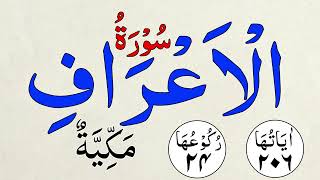 سُوْرَةُ
الْاَعْرَافِ
مَكِّيَّةٌ
رُكُوْعُهَا
٢٤
اٰيَاتُهَا
٢٠٦